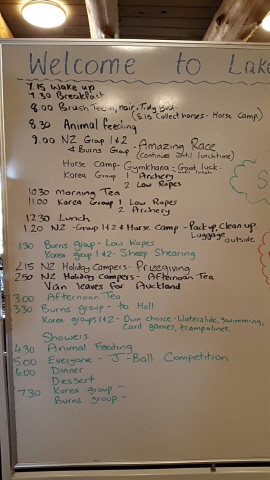 Welcome to Lake
7.15 Wake up
7.30 Breakfast
8.00 Brush Teeth, hair, Tidy
(8.15 Collect horses - Horse Camp)
8.30 Animal feeding
9.00 NZ Group 1+2
& Burns Group - Amazing Race
(continues until lunchtime)
Horse Camp - Gymkhana - Good luck
Korea Group 1 Archery
2 Low Ropes
10.30 Morning Tea
11.00 Korea Group 1 Low Ropes
2 Archery
12.30 Lunch
1.20 NZ - Group 1+2 + Horse Camp - Pack up, Clean up
Luggage outside
1.30 Burns group - Low Ropes
Korea group 1+2 - Sheep Shearing
2.15 NZ Holiday Campers - Prizegiving
2.50 NZ Holiday Campers - Afternoon Tea
Van leaves for Auckland
3.00 Afternoon Tea
3.30 Burns group - to Hall
Korea groups 1+2 - Own choice - Waterslide, swimming,
Card games, trampolines.
Showers
4.30 Animal Feeding
5.00 Everyone - J-Ball Competition
6.00 Dinner
Dessert
7.30 Korea group -
Burns group -